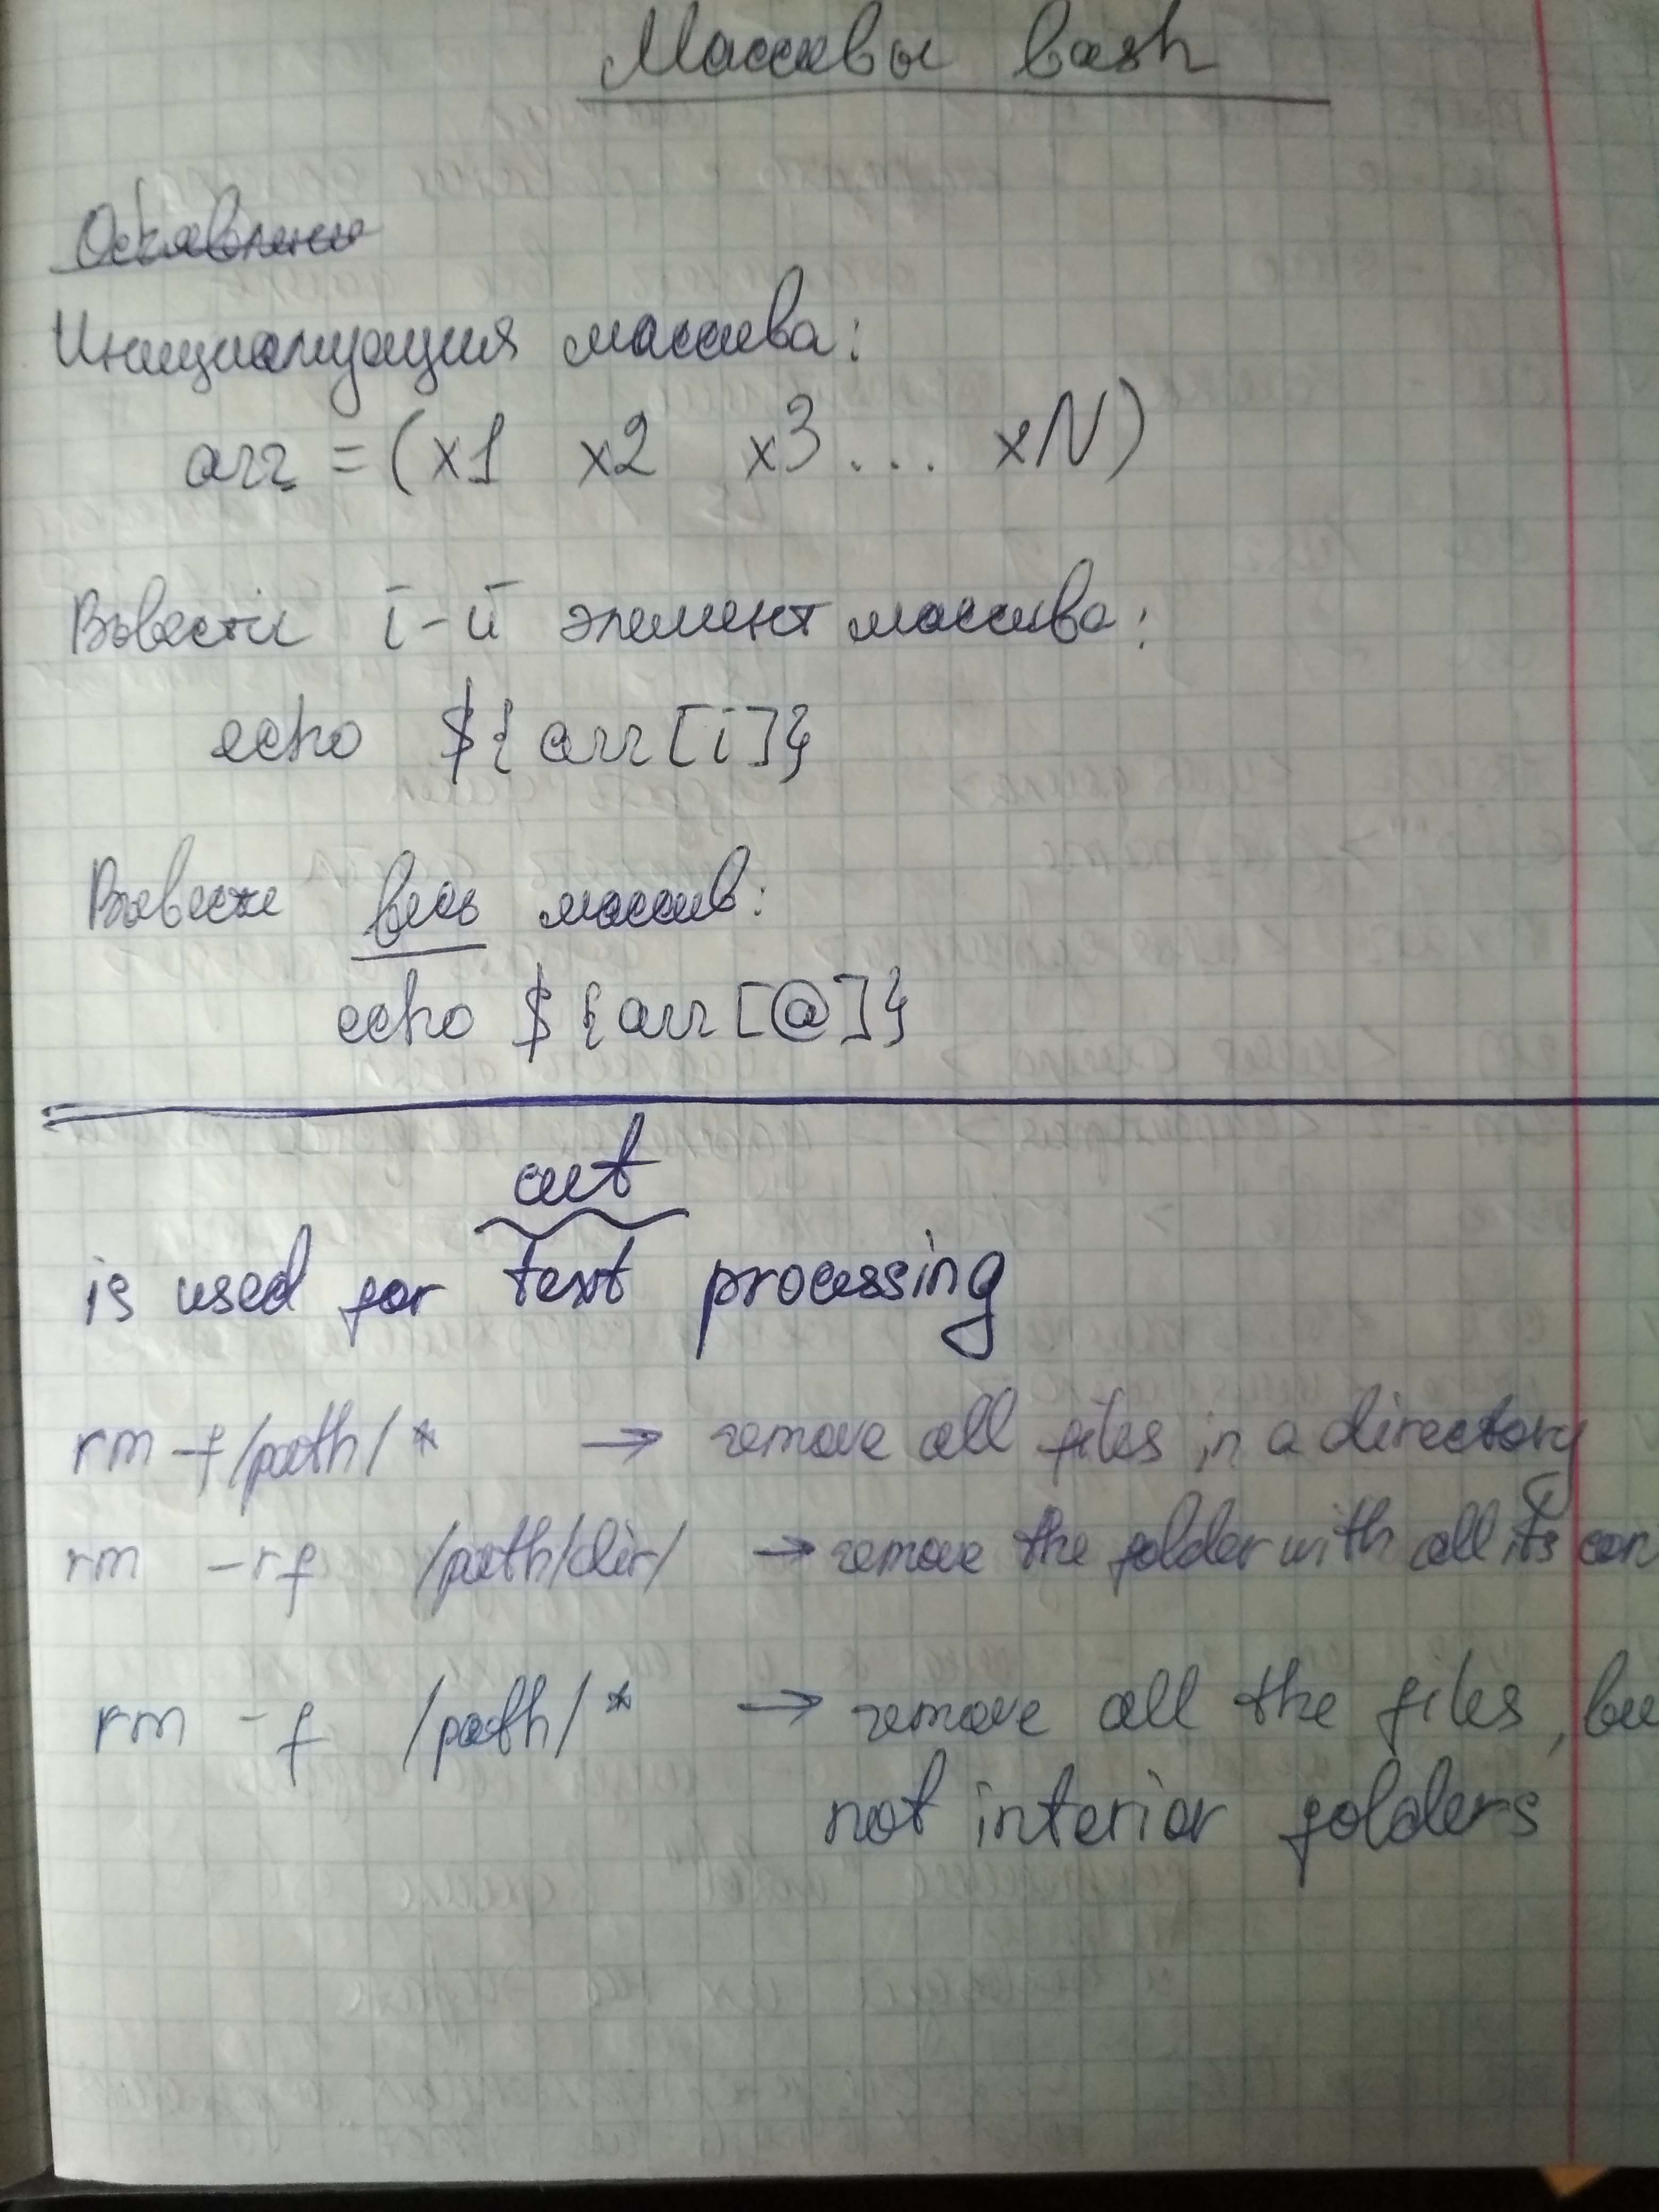 Массивы bash
Объявление
Инициализация массива:
arr = (x1 x2 x3 ... xN)
Вывести i-й элемент массива:
echo ${arr[i]}
Вывести весь массив:
echo ${arr[@]}
cut
is used for text processing
rm -f /path/* → remove all files in a directory
rm -rf /path/dir/ → remove the folder with all its con
rm -f /path/* → remove all the files, bu
not interior folders